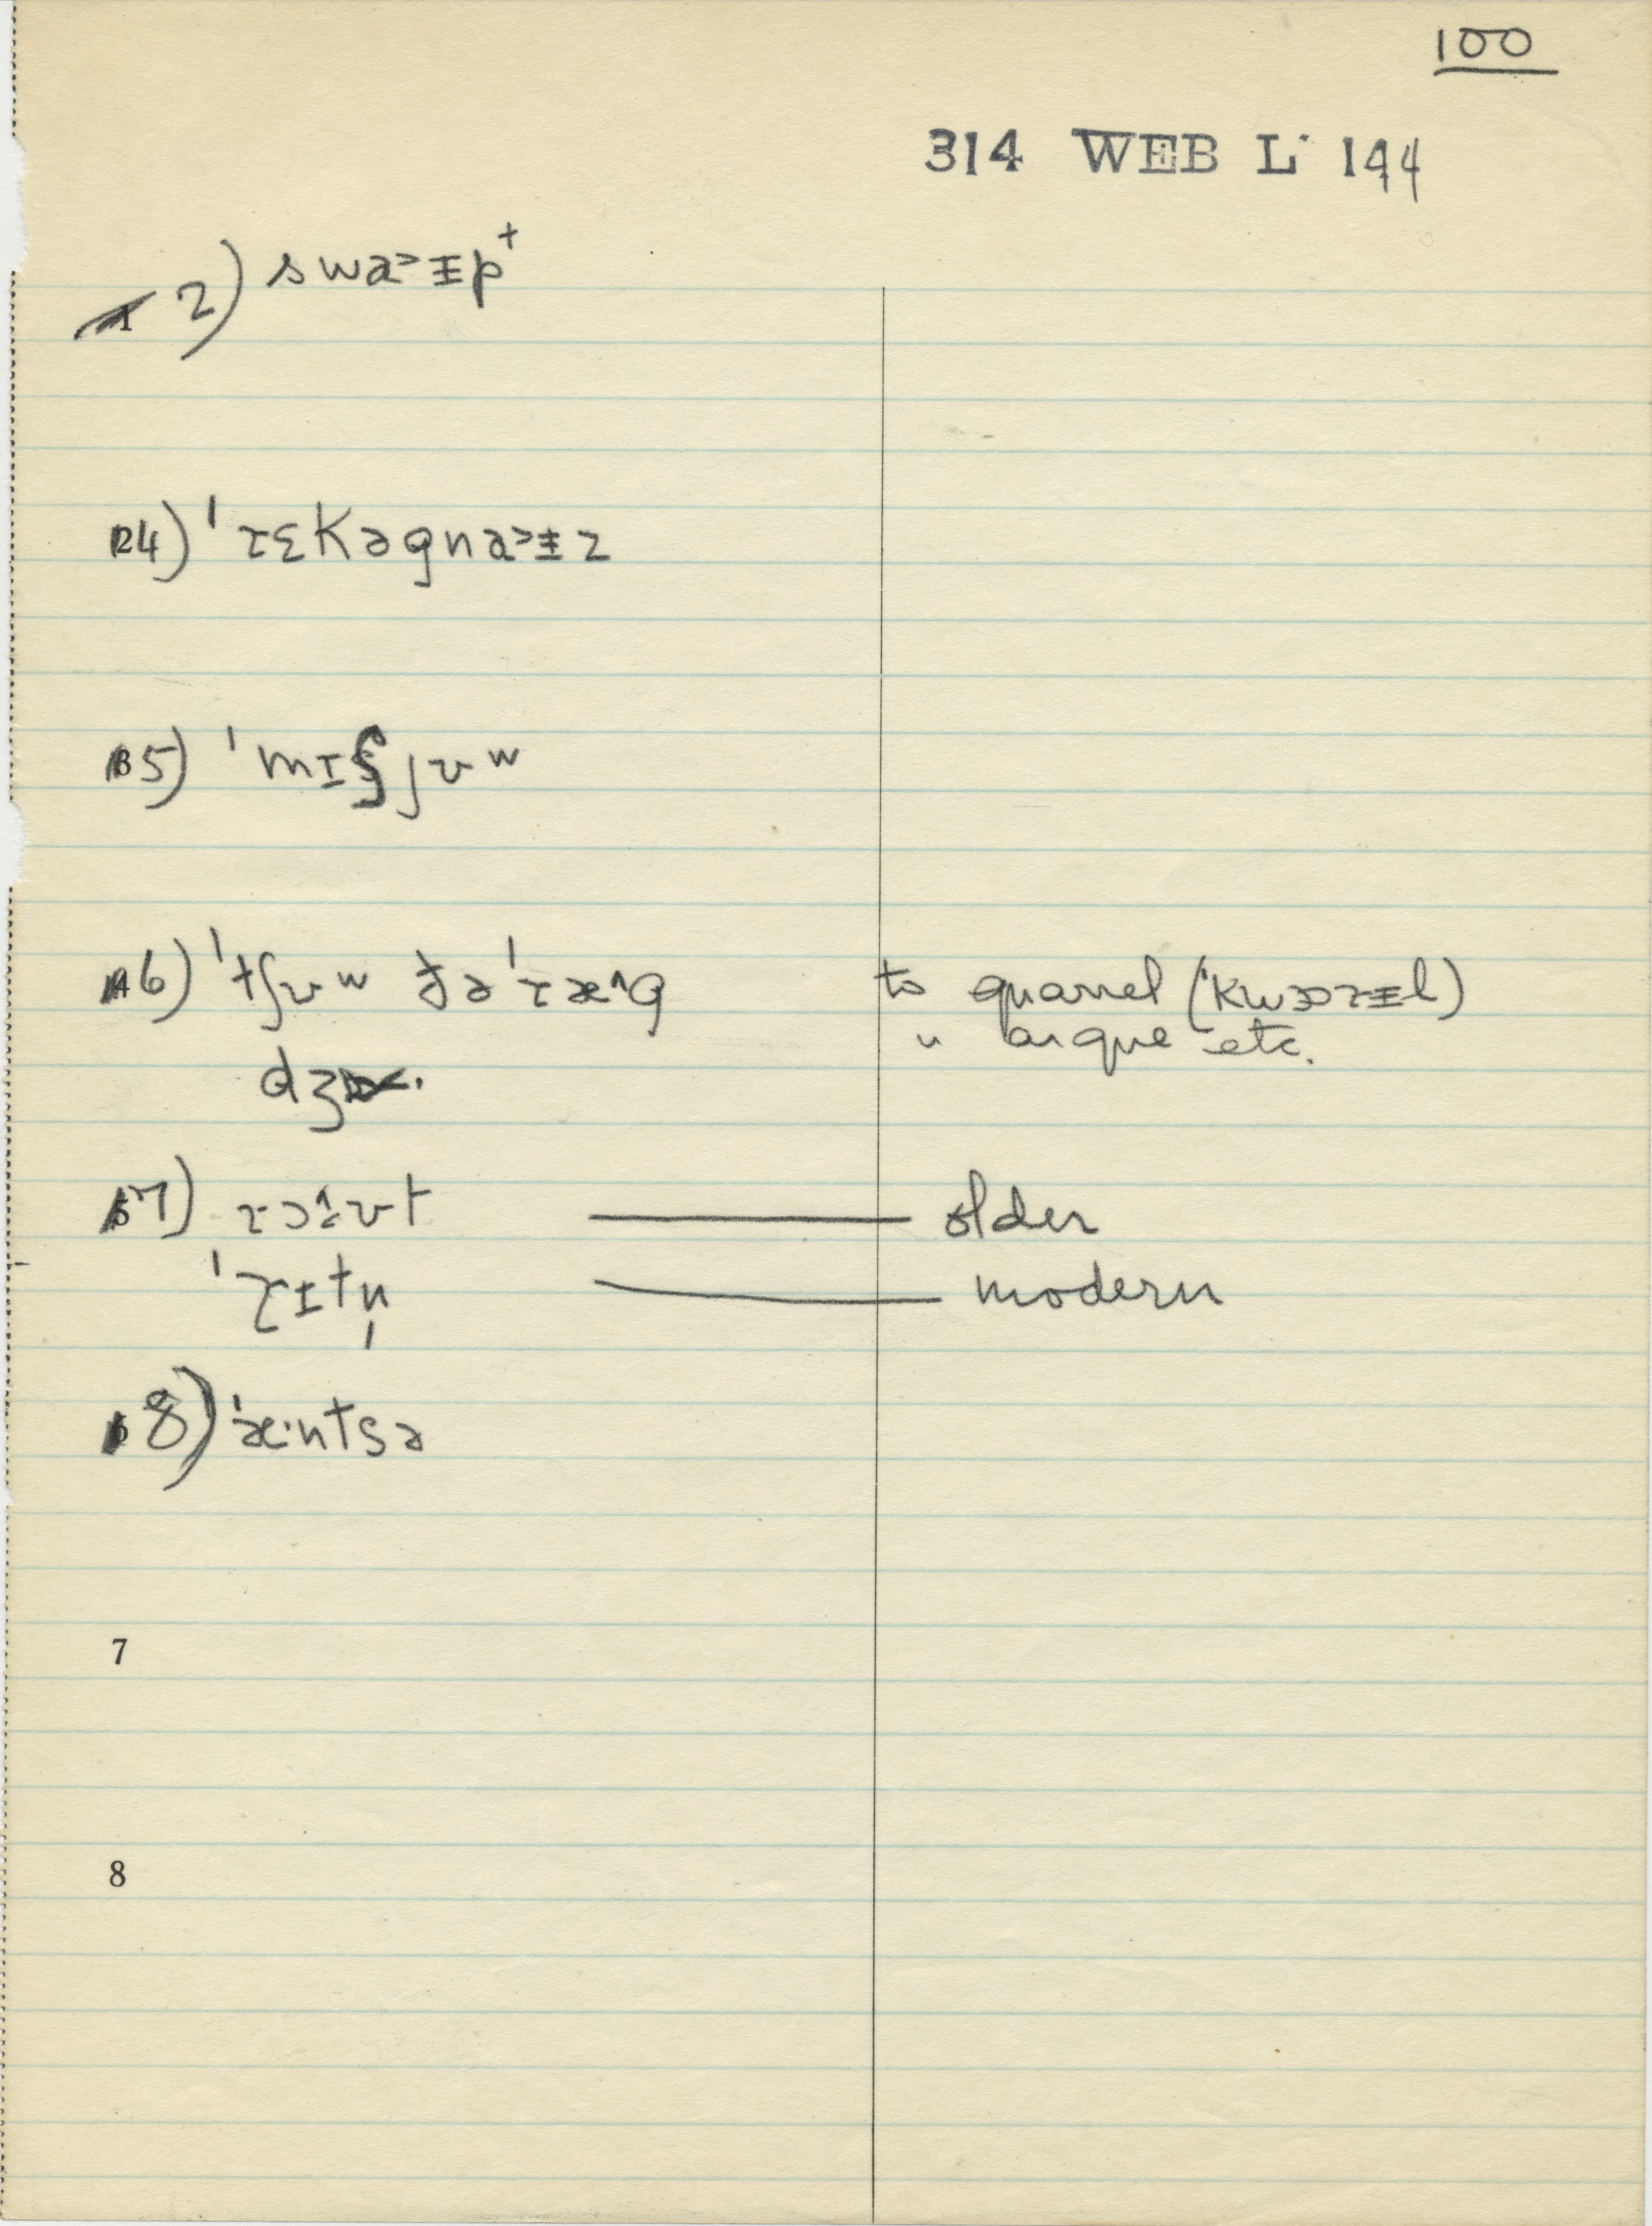 100
314 WEB L· 144
2) swa˃ɪ̵p⁺
4) ˈɾɛkəgna˃ɪ̵z
5) ˈmɪsjʊʷ
6) ˈtʃʊʷ ðəˈɾæ^g to quarrel (ˈkwɔɾɪ̵l)
" argue etc.
dʒ
7) older
ˈɾɪtn̩ modern
8) ˈæ·ntsə
7
8